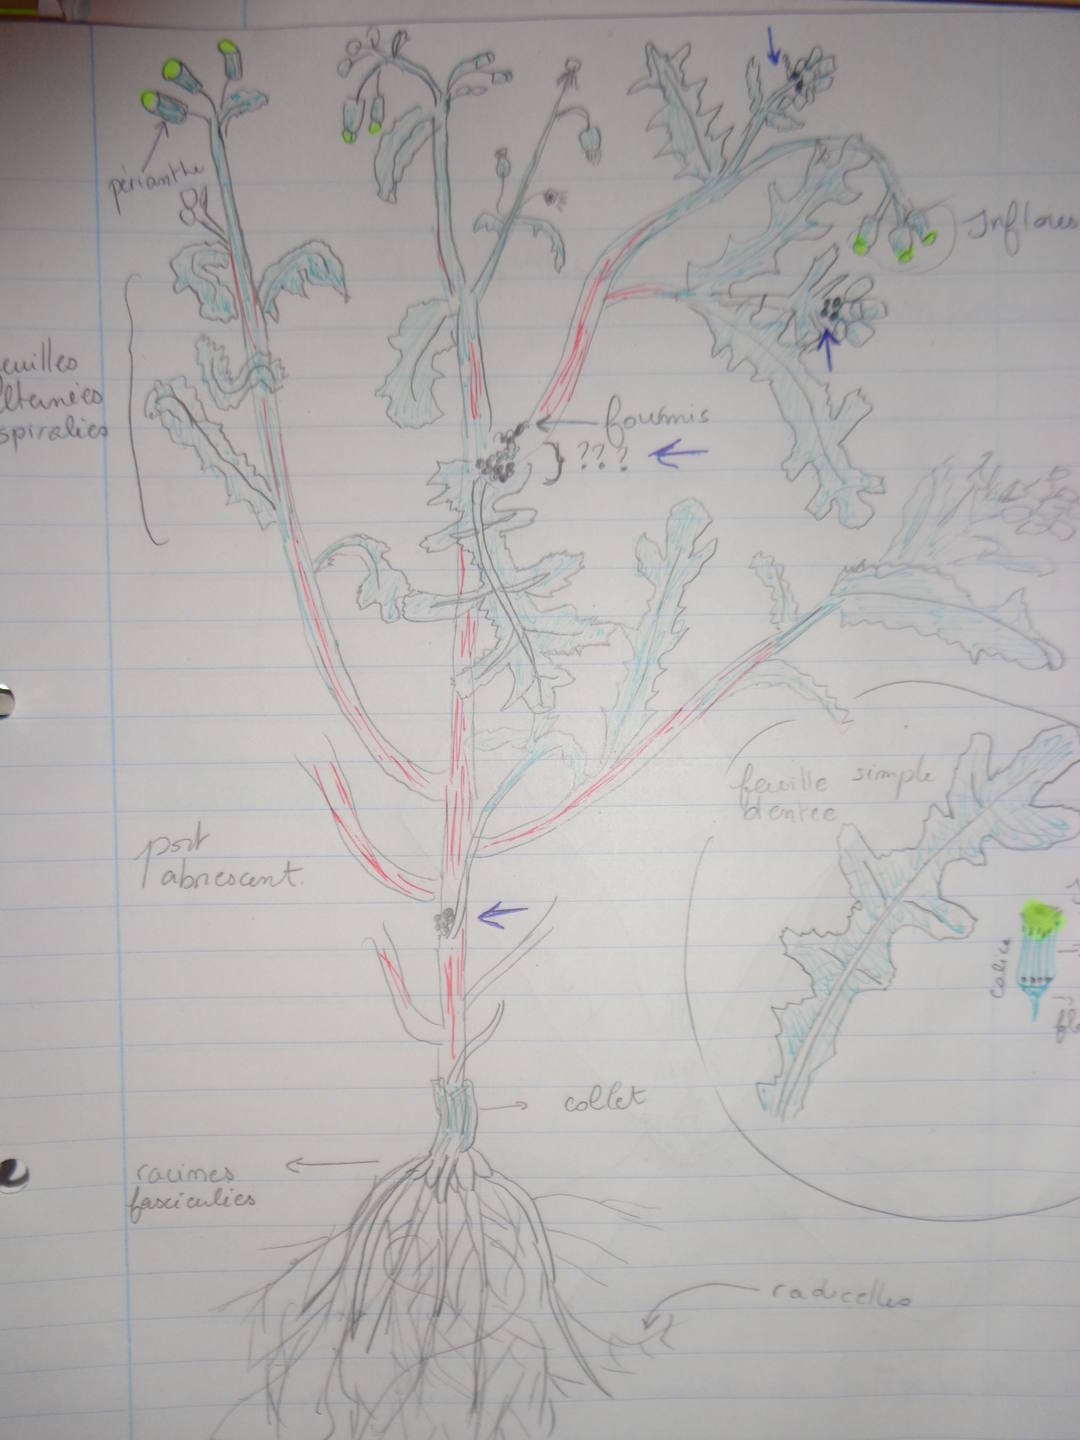 périanthe
Inflores
euilles
lternées
spiralées
fourmis
? ? ?
feuille simple
dentée
port
abrescent.
calice
collet
racines
fasciculées
radicelles